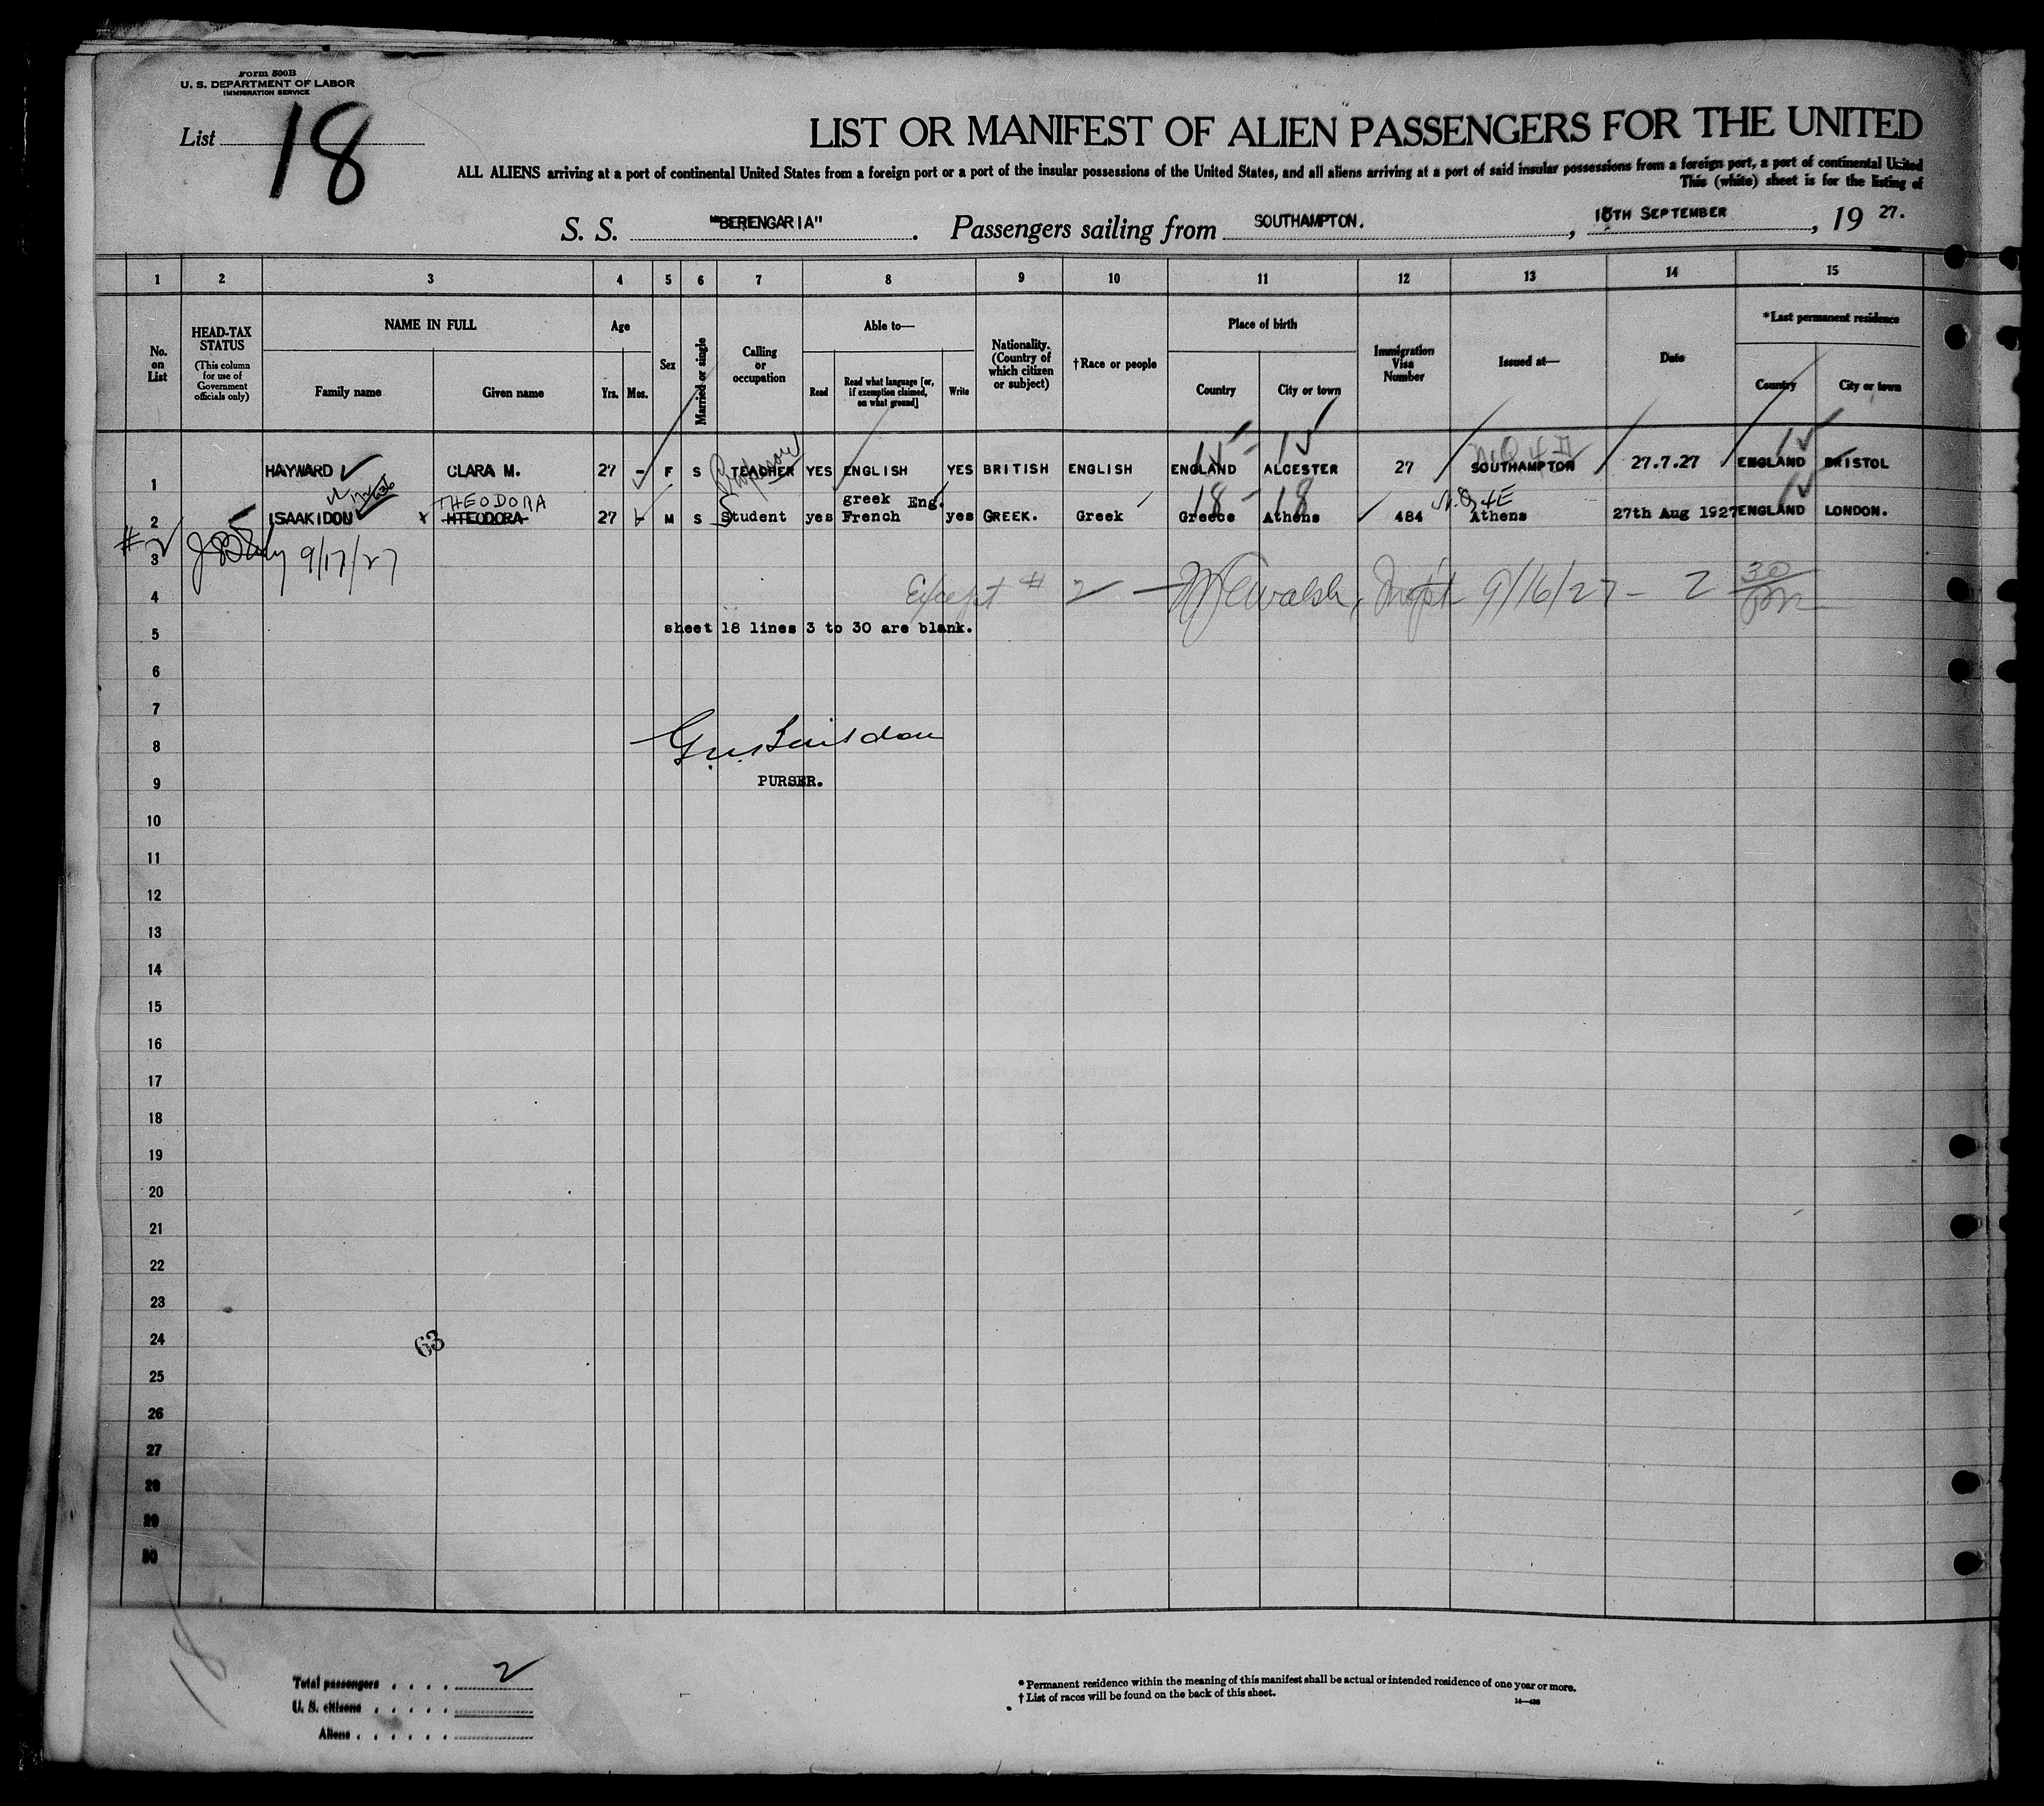 Form 500B
U. S. DEPARTMENT OF LABOR
IMMIGRATION SERVICE
List 18
LIST OR MANIFEST OF ALIEN PASSENGERS FOR THE UNITED
ALL ALIENS arriving at a port of continental United States from a foreign port or a port of the insular possessions of the United States, and all aliens arriving at a port of said insular possessions from a foreign port, a port of continental United
This (white) sheet is for the listing of
S. S. "BERENGARIA". Passengers sailing from SOUTHAMPTON., SEPTEMBER, 19 27.
1 2 3 4 5 6 7 8 9 10 11 12 13 14 15
No. on List
HEAD-TAX STATUS
(This column for use of Government officials only)
NAME IN FULL
Family name
Given name
Age
Yrs. Mos.
Sex
Married or single
Calling or occupation
Able to—
Read
Read what language [or, if exemption claimed, on what ground]
Write
Nationality. (Country of which citizen or subject)
†Race or people
Place of birth
Country
City or town
Immigration Visa Number
Issued at—
Date
*Last permanent residence
Country
City or town
Professor
15 - 15
1 HAYWARD CLARA M. 27 - F S TEACHER YES ENGLISH YES BRITISH ENGLISH ENGLAND ALCESTER 27 SOUTHAMPTON 27.7.27 ENGLAND BRISTOL
THEODORA greek Eng. 18 - 18
2 ISAAKIDOU x HTEODORA 27 - M S Student yes French yes GREEK. Greek Greece Athens 484 Athens 27th Aug 1927 ENGLAND LONDON.
# 2
3 9/17/27
4 Except # 2 — Walsh, Insp't 9/16/27 - 2 30 pm
5 sheet 18 lines 3 to 30 are blank.
6
7
8
9 PURSER.
10
11
12
13
14
15
16
17
18
19
20
21
22
23
24
63
25
26
27
28
29
30
18
Total passengers . . . . 2
U. S. citizens . . . . .
Aliens . . . . . .
* Permanent residence within the meaning of this manifest shall be actual or intended residence of one year or more.
† List of races will be found on the back of this sheet.
14—430